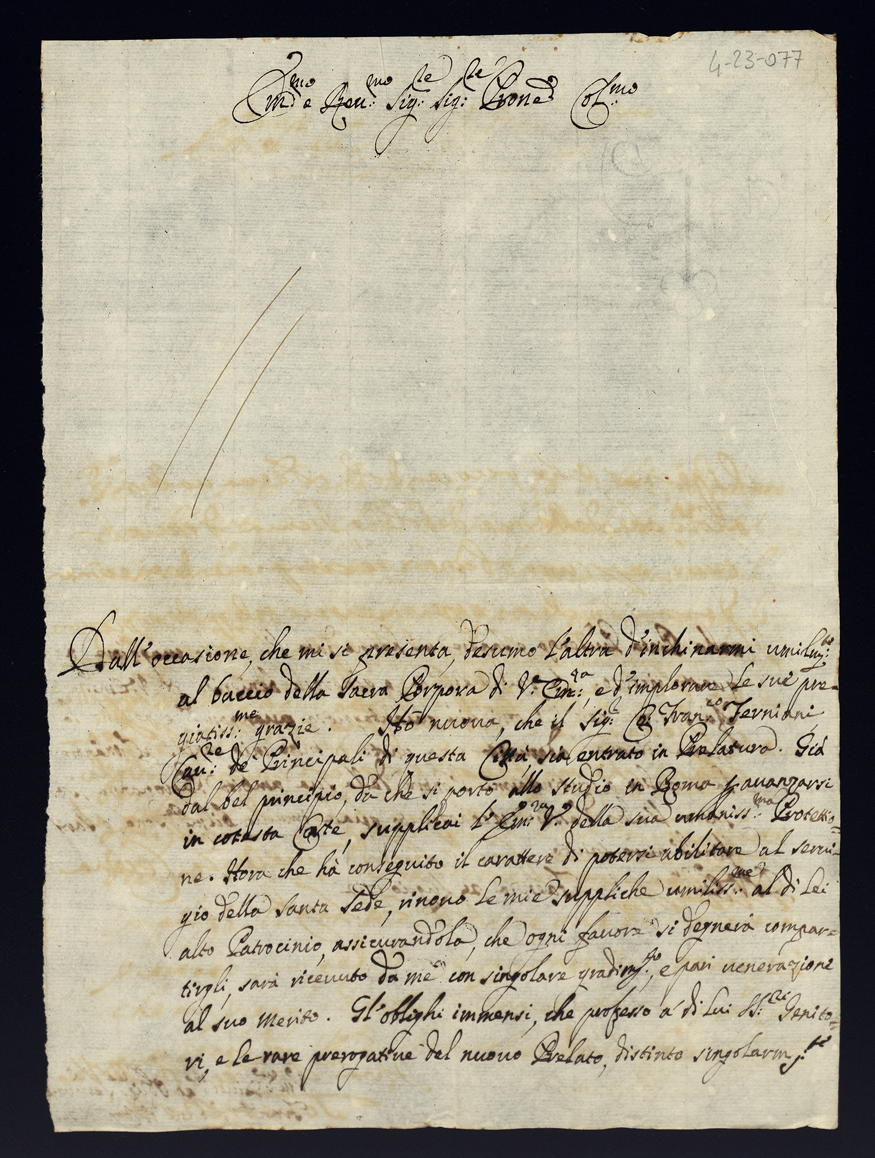 4-23-077
Em.mo e Rev.mo Sig.re Sig.re Prone Col.mo
Dall'occasione, che mi si presenta, desumo l'altra d'inchinarmi umilm.te
al baccio della Sacra Porpora di V.a Em.za, e d'implorare le sue pre-
giatiss.me grazie. Hò nuova, che il Sig.r Co: Fran.co Ferniani
de Principali di questa Città sia entrato in Prelatura. Già
dal bel principio, da che si portò allo studio in Roma p avanzarsi
in cotesta Corte, supplicai l'Em.za V.a della sua umaniss.ma Protetio-
ne. Hora che hà conseguito il carattere di potersi abilitare al servi-
gio della Santa Sede, rinovo le mie suppliche umiliss.me al di Lei
alto Patrocinio, assicurandola, che ogni favore si degnerà compar-
tirgli, sarà ricevuto da me con singolare gradim.to, e pari venerazione
al suo merito. Gl'oblighi immensi, che professo a' di lui SS.ri Genito-
ri, e le rare prerogative del nuovo Prelato, distinto singolarm.te